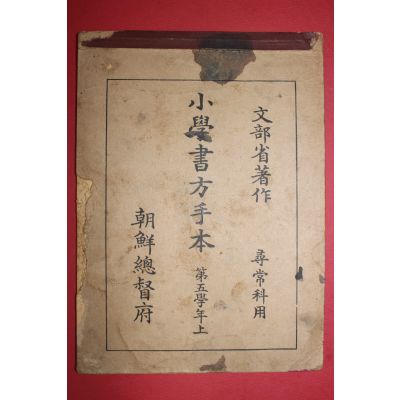 文部省著作 尋常科用
小學書方手本 第五學年上
朝鮮總督府